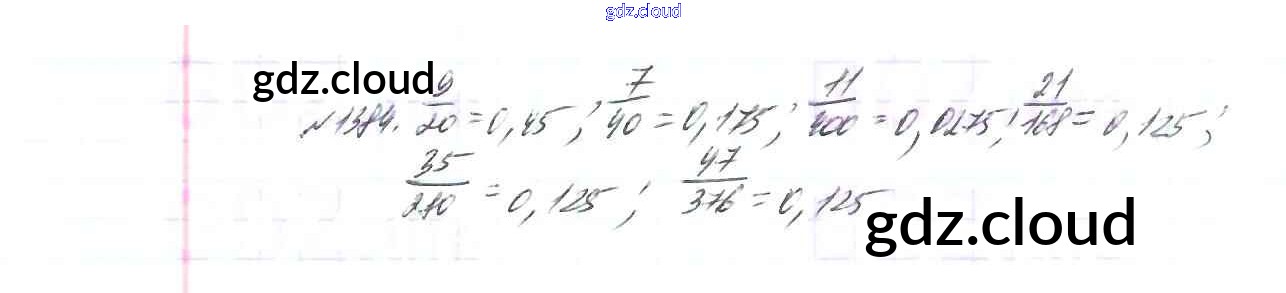 gdz.cloud
gdz.cloud
№1384. 9/20 = 0,45; 7/40 = 0,175; 11/400 = 0,0275; 21/168 = 0,125;
35/280 = 0,125; 47/376 = 0,125
gdz.cloud